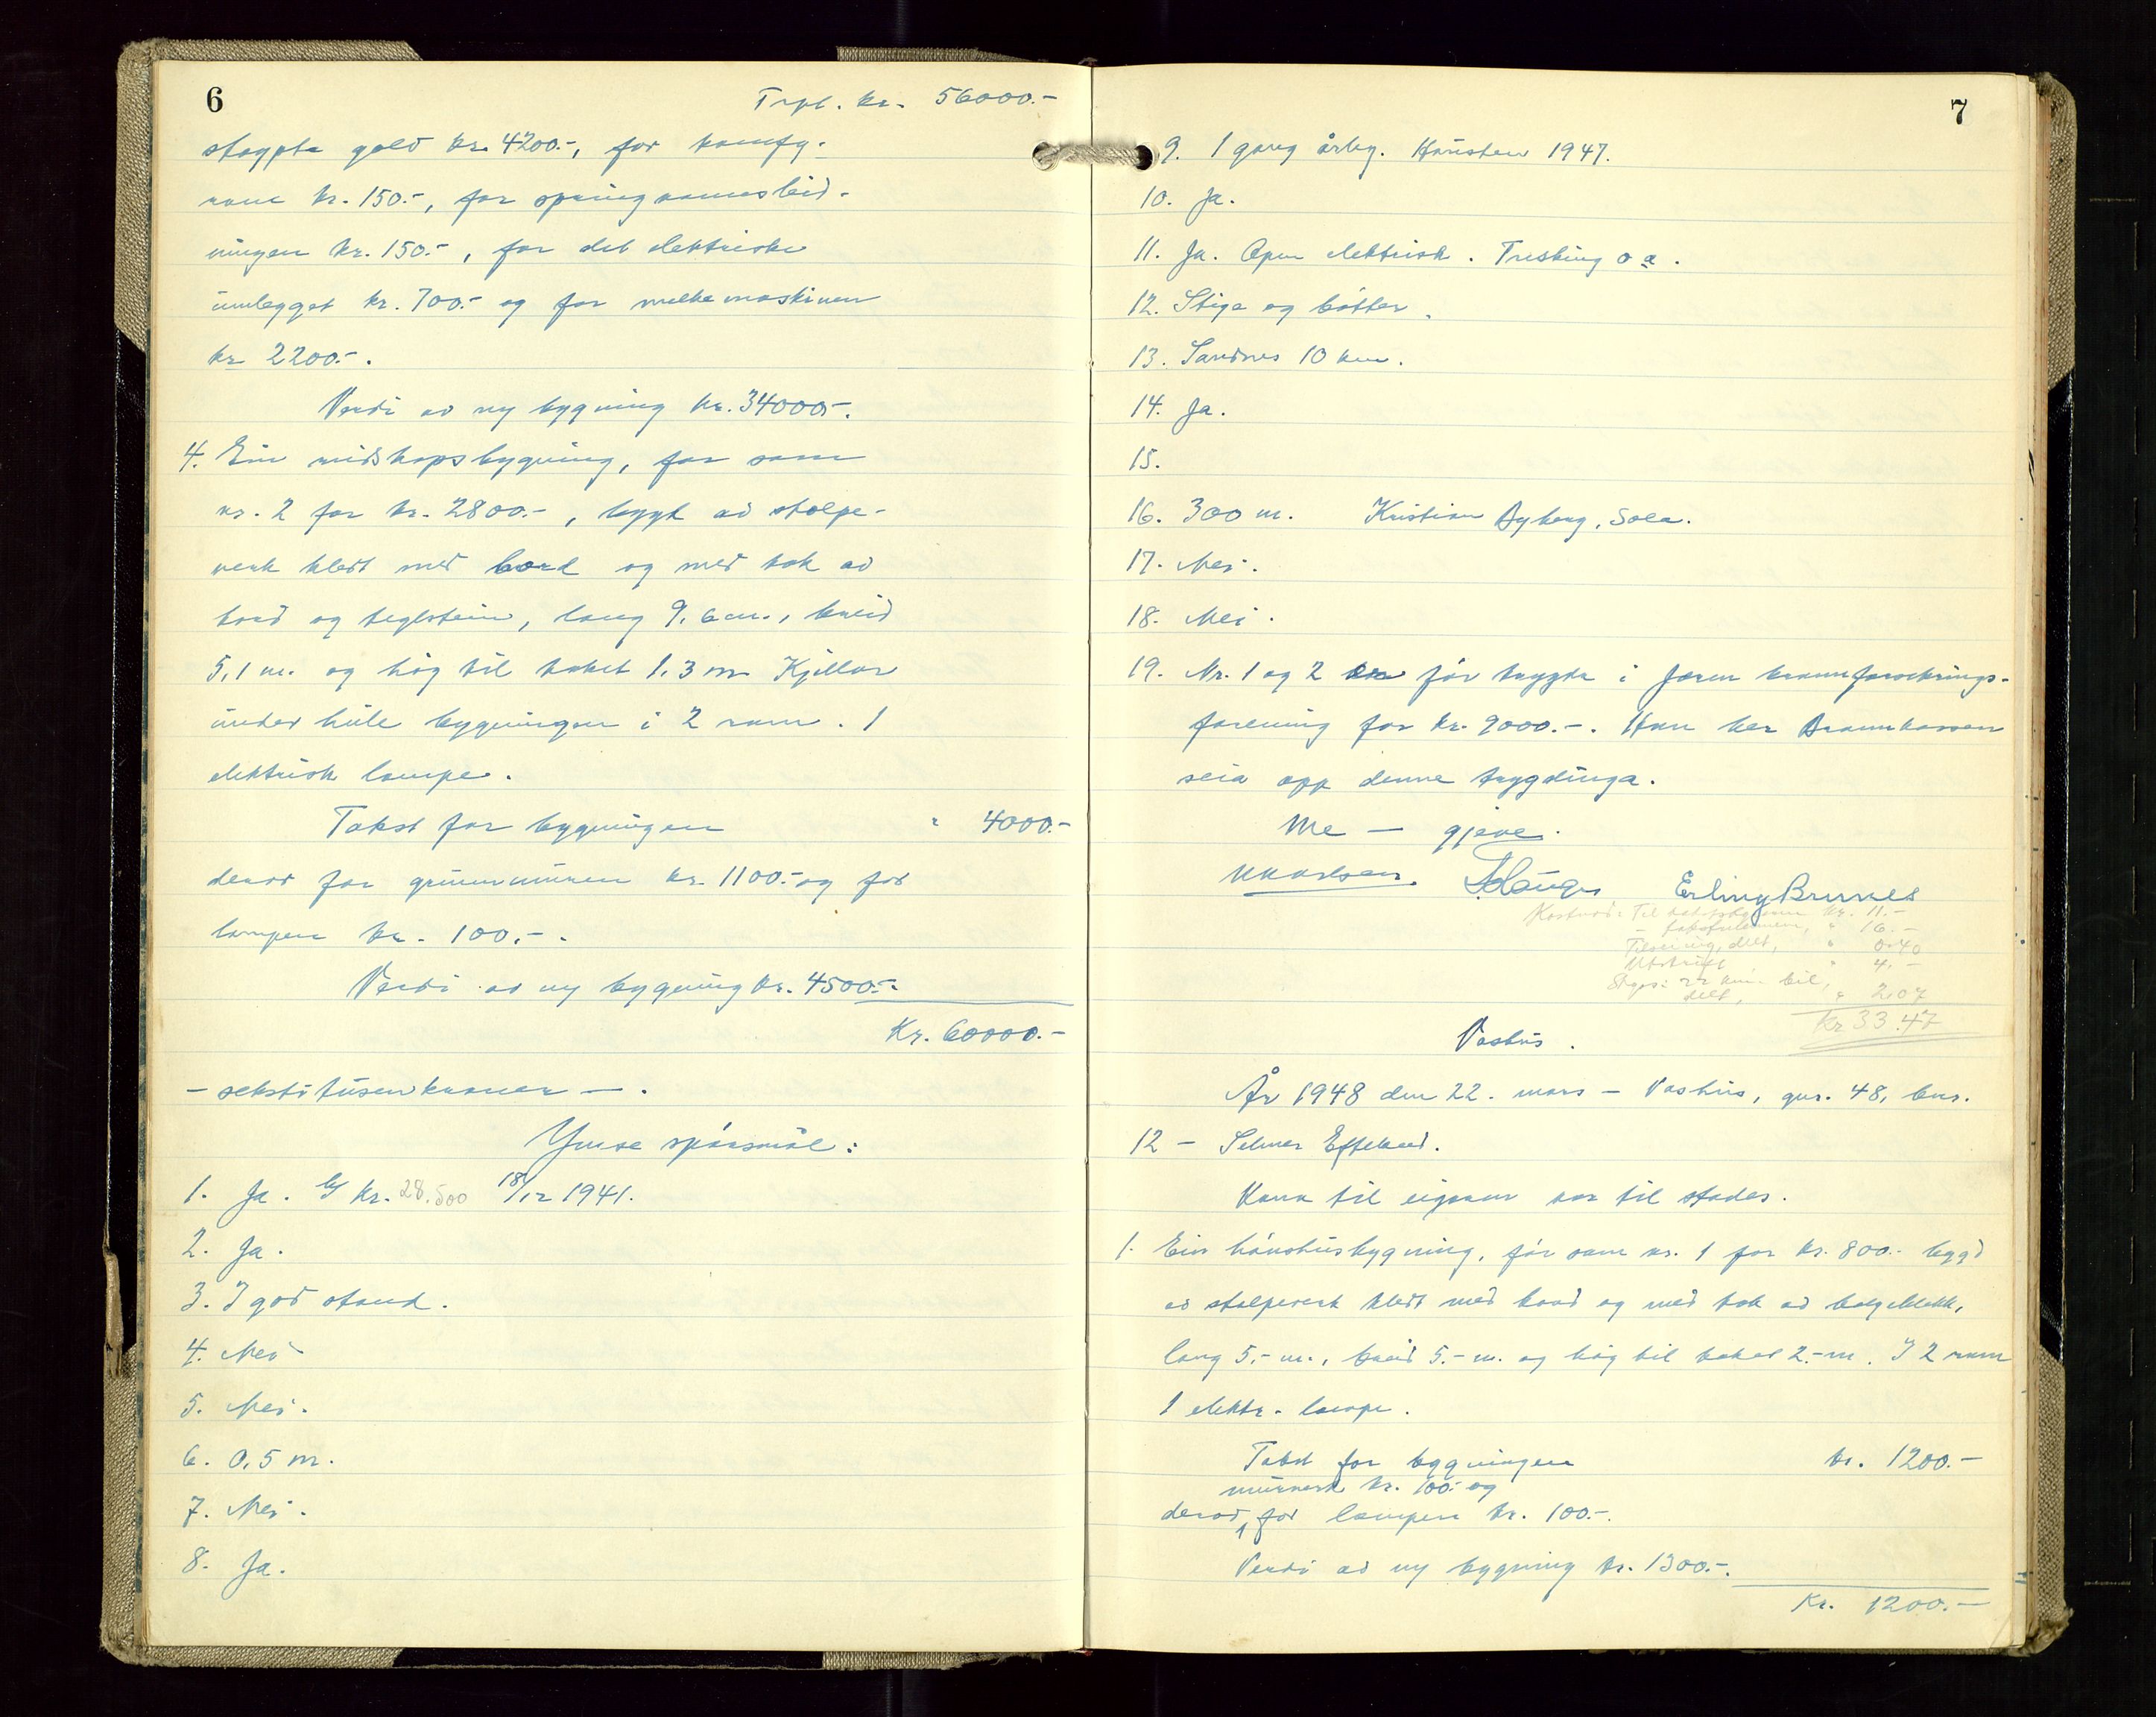 6
Trpl. kr. 56000.-
støypte golv kr. 4200.-, for komfy-
rane kr. 150.-, for springvannsleid-
ningen kr. 150.-, for det elektriske
innlegget kr. 700.- og for melkemaskinen
kr 2200.-.
Verdi av ny bygning kr. 34000.-.
4. Ein reidskapsbygning, før som
nr. 2 for kr. 2800.-, bygt av stolpe-
verk kledt med bord og med tak av
bord og teglstein, lang 9,6 m., breid
5,1 m. og høg til taket 1.3 m. Kjellar
under heile bygningen i 2 rom. 1
elektrisk lampe.
Takst for bygningen " 4000.-
derav for grunnmuren kr. 1100.- og for
lampen kr. 100.-.
Verdi av ny bygning kr. 4500.-.
Kr. 60000.-
- sekstitusen kroner -.
Ymse spørsmål:
1. Ja. kr. 28.500 18/12 1941.
2. Ja.
3. I god stand.
4. Nei
5. Nei.
6. 0,5 m.
7. Nei.
8. Ja.
7
9. 1 gong årleg. Hausten 1947.
10. Ja.
11. Ja. Open elektrisk. Tresking o a.
12. Stige og bøtter.
13. Sandnes 10 km.
14. Ja.
15.
16. 300 m. Kristian Myberg, Sola.
17. Nei.
18. Nei.
19. Nr. 1 og 2 er før trygda i Jæren brannforsikrings-
forening for kr. 9000.-. Han ber Brannkassen
seia opp denne trygdinga.
Me — gjeve.
Erling Brunes
Kostnad: Til kr. 11.-
- " 16.-
delt, " 0.40
Utskrift " 4.-
Skyss: 22 km. bil,
delt, " 2,07
Kr 33.47
Vashus.
År 1948 den 22. mars - Vashus, gnr. 48, bnr.
12 - Selmer Efteland.
Kona til eigaren var til stades.
1. Ein hønsehusbygning, før som nr. 1 for kr. 800.- bygd
av stolpeverk kledt med bord og med tak av bølgeblekk,
lang 5.- m., breid 5.- m. og høg til taket 2.- m. I 2 rom
1 elektr. lampe.
Takst for bygningen kr. 1200.-
murverk kr. 100.- og
derav, for lampen kr. 100.-.
Verdi av ny bygning kr. 1300.-.
Kr. 1200.-